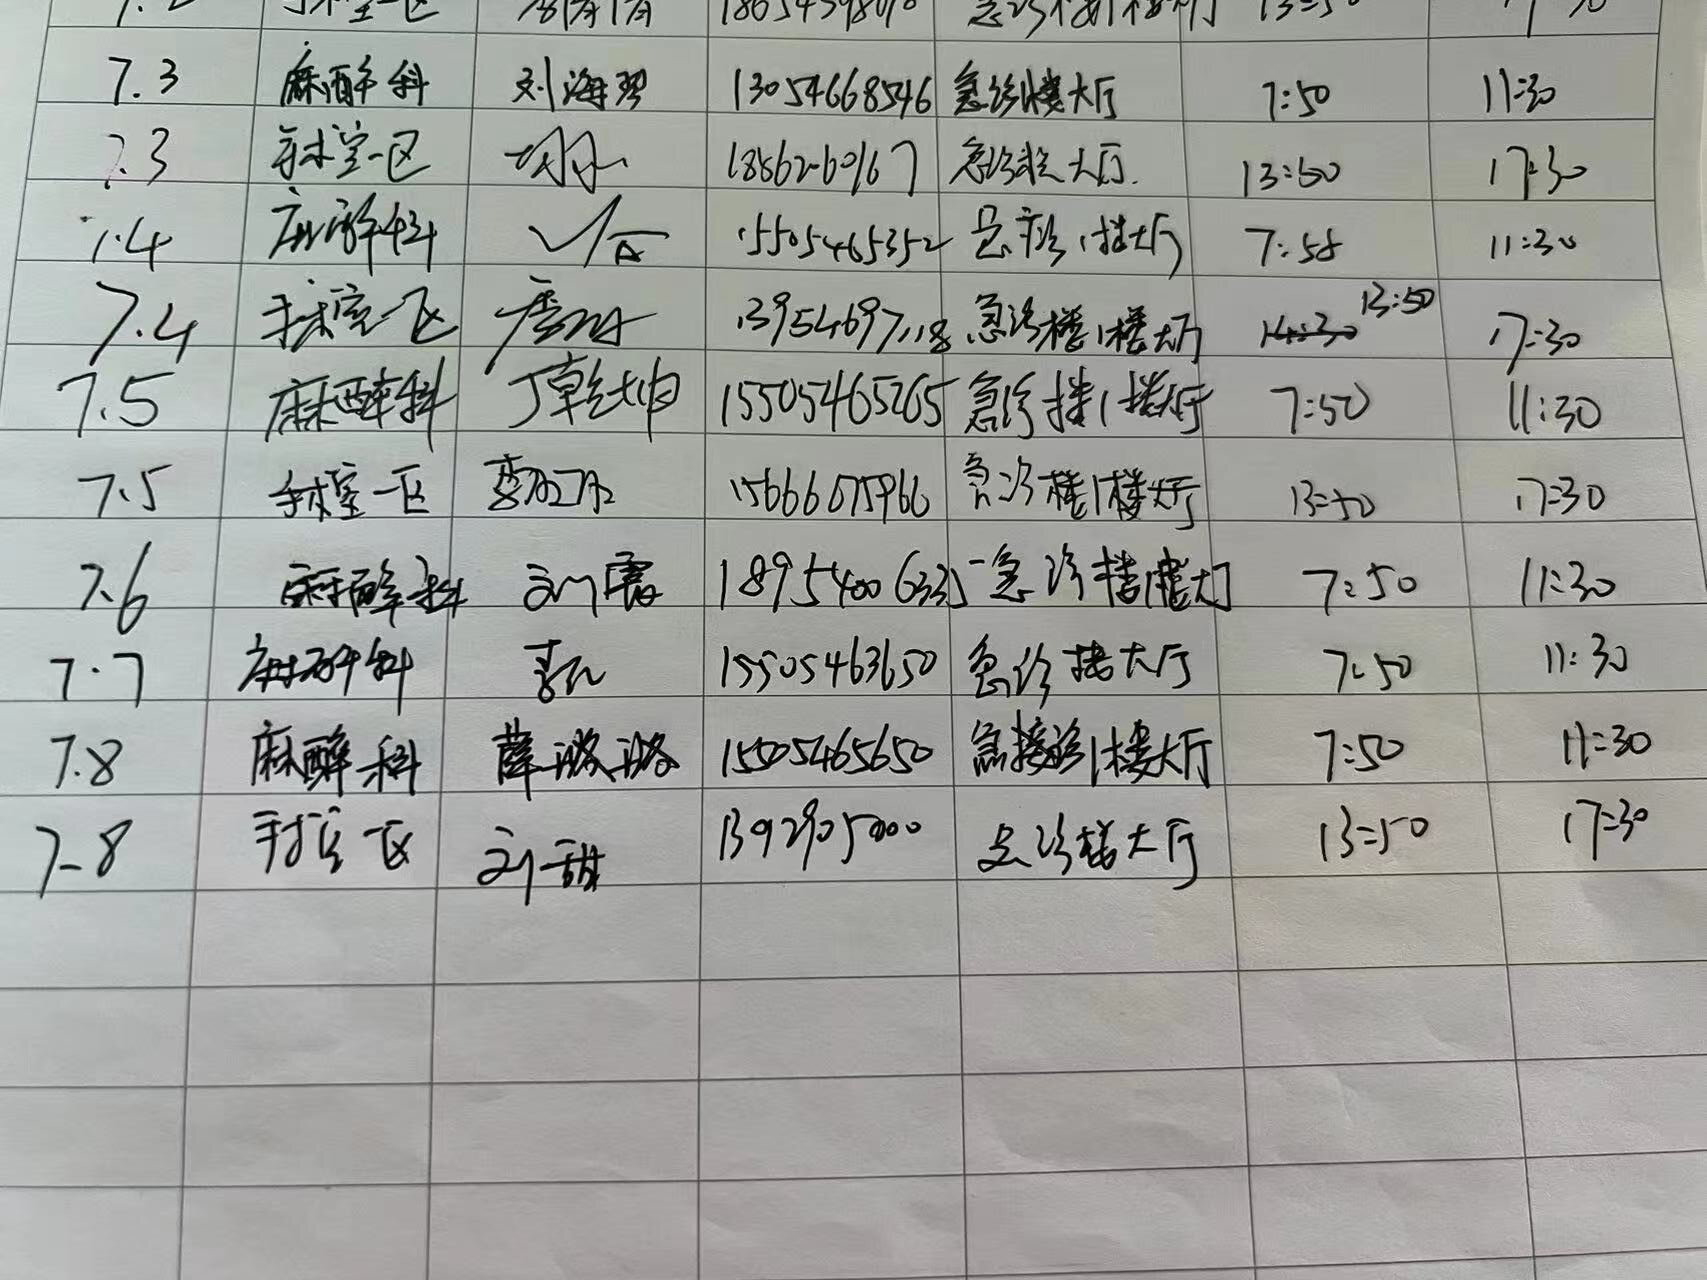 7.2 手术室一区 13:50 17:30
7.3 麻醉科 刘海碧 13054668546 急诊楼大厅 7:50 11:30
7.3 手术室一区 急诊楼大厅. 13:50 17:30
7.4 麻醉科 15505465352 急诊1楼大厅 7:58 11:30
7.4 手术室一区 急诊楼1楼大厅 14:30 13:50 17:30
7.5 麻醉科 丁乾坤 15505465265 急诊楼1楼大厅 7:50 11:30
7.5 手术室一区 15666075966 急诊楼1楼大厅 13:50 17:30
7.6 麻醉科 刘霞 急诊楼1楼大厅 7:50 11:30
7.7 麻醉科 15505463650 急诊楼大厅 7:50 11:30
7.8 麻醉科 薛潞潞 15505465650 7:50 11:30
7-8 手术室一区 刘甜 急诊楼大厅 13:50 17:30